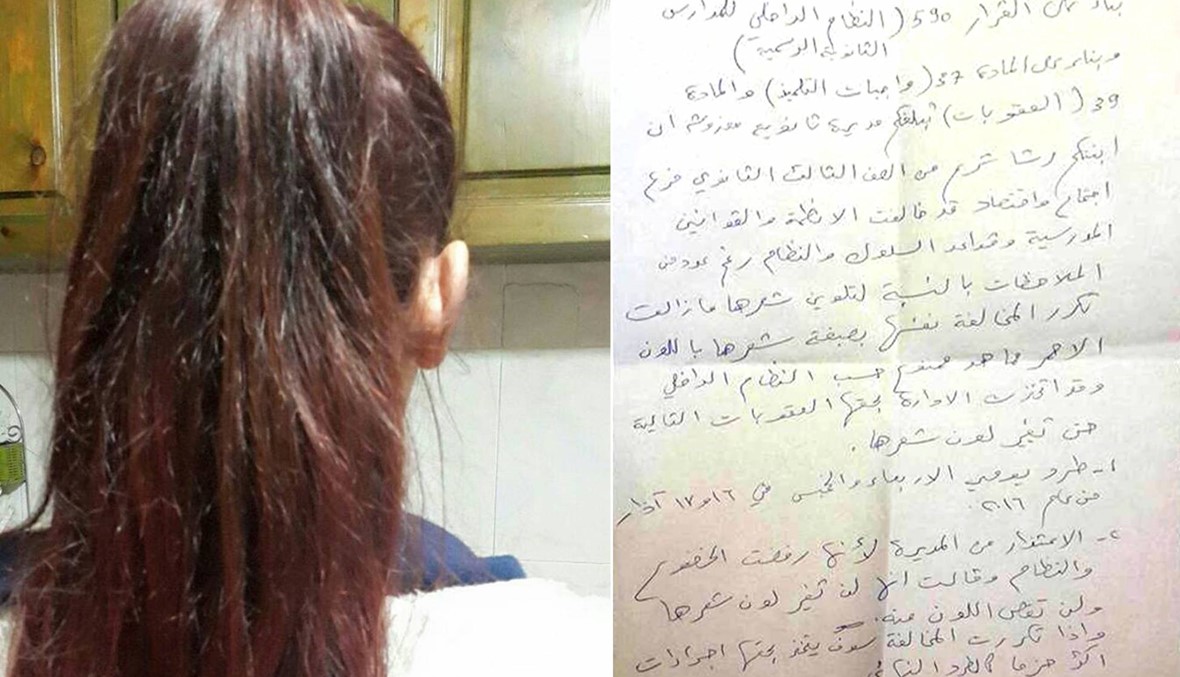 بناء على القرار 590 (النظام الداخلي للمدارس
الثانوية الرسمية)
وبناء على المادة 37 (واجبات التلميذ) والمادة
39 (العقوبات) تبلغكم مديرة ثانوية معروشه ان
ابنتكم رشا شريم من الصف الثالث الثانوي فرع
اجتماع واقتصاد قد خالفت الانظمة والقوانين
المدرسية وقواعد السلوك والنظام رغم عدد من
الملاحظات بالنسبة لتلوين شعرها مازالت
تكرر المخالفة نفسها بصبغة شعرها باللون
الاحمر مما هو ممنوع حسب النظام الداخلي
وقد اتخذت الادارة بحقها العقوبات التالية
حتى تغير لون شعرها.
١- طرد يومي الاربعاء والخميس في ١٦ و ١٧ آذار
من عام ٢٠١٦.
٢- الاعتذار من المديرة لأنها رفضت الخضوع
والنظام وقالت انها لن تغير لون شعرها
ولن تقص اللون منه.
واذا تكررت المخالفة سوف يتخذ بحقها اجراءات
اكثر حزما كالطرد النهائي